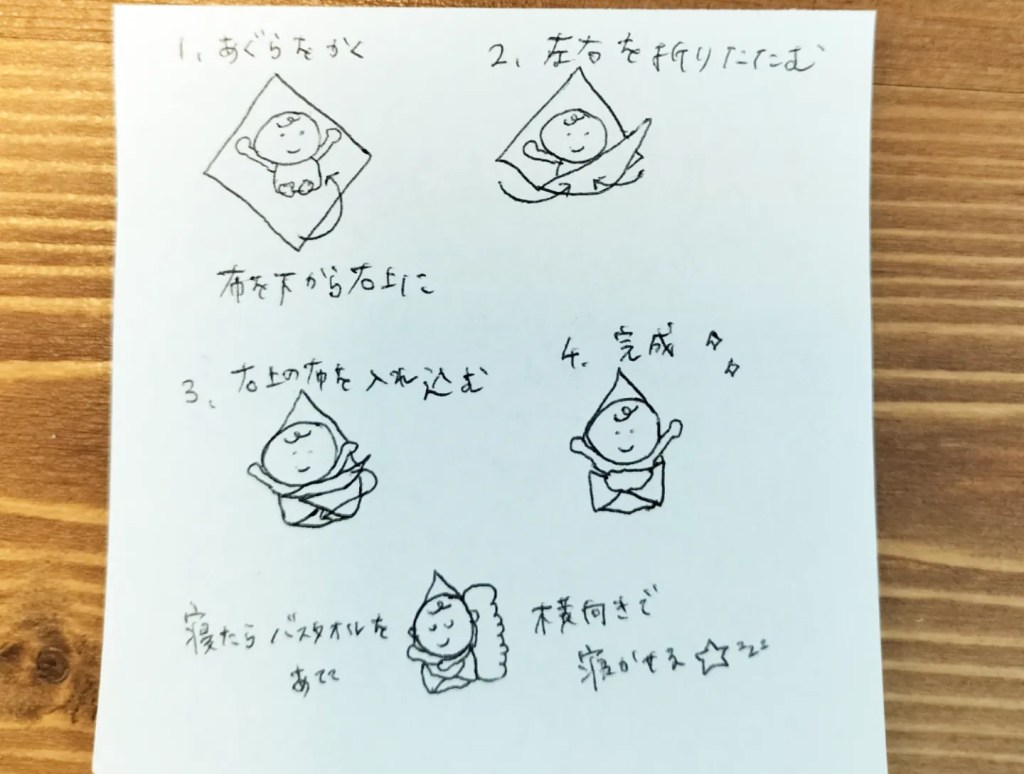 1、あぐらをかく
2、左右を折りたたむ
布を下から右上に
3、右上の布を入れ込む
4、完成
寝たらバスタオルを
あてて
横向きで
寝かせる☆zzz